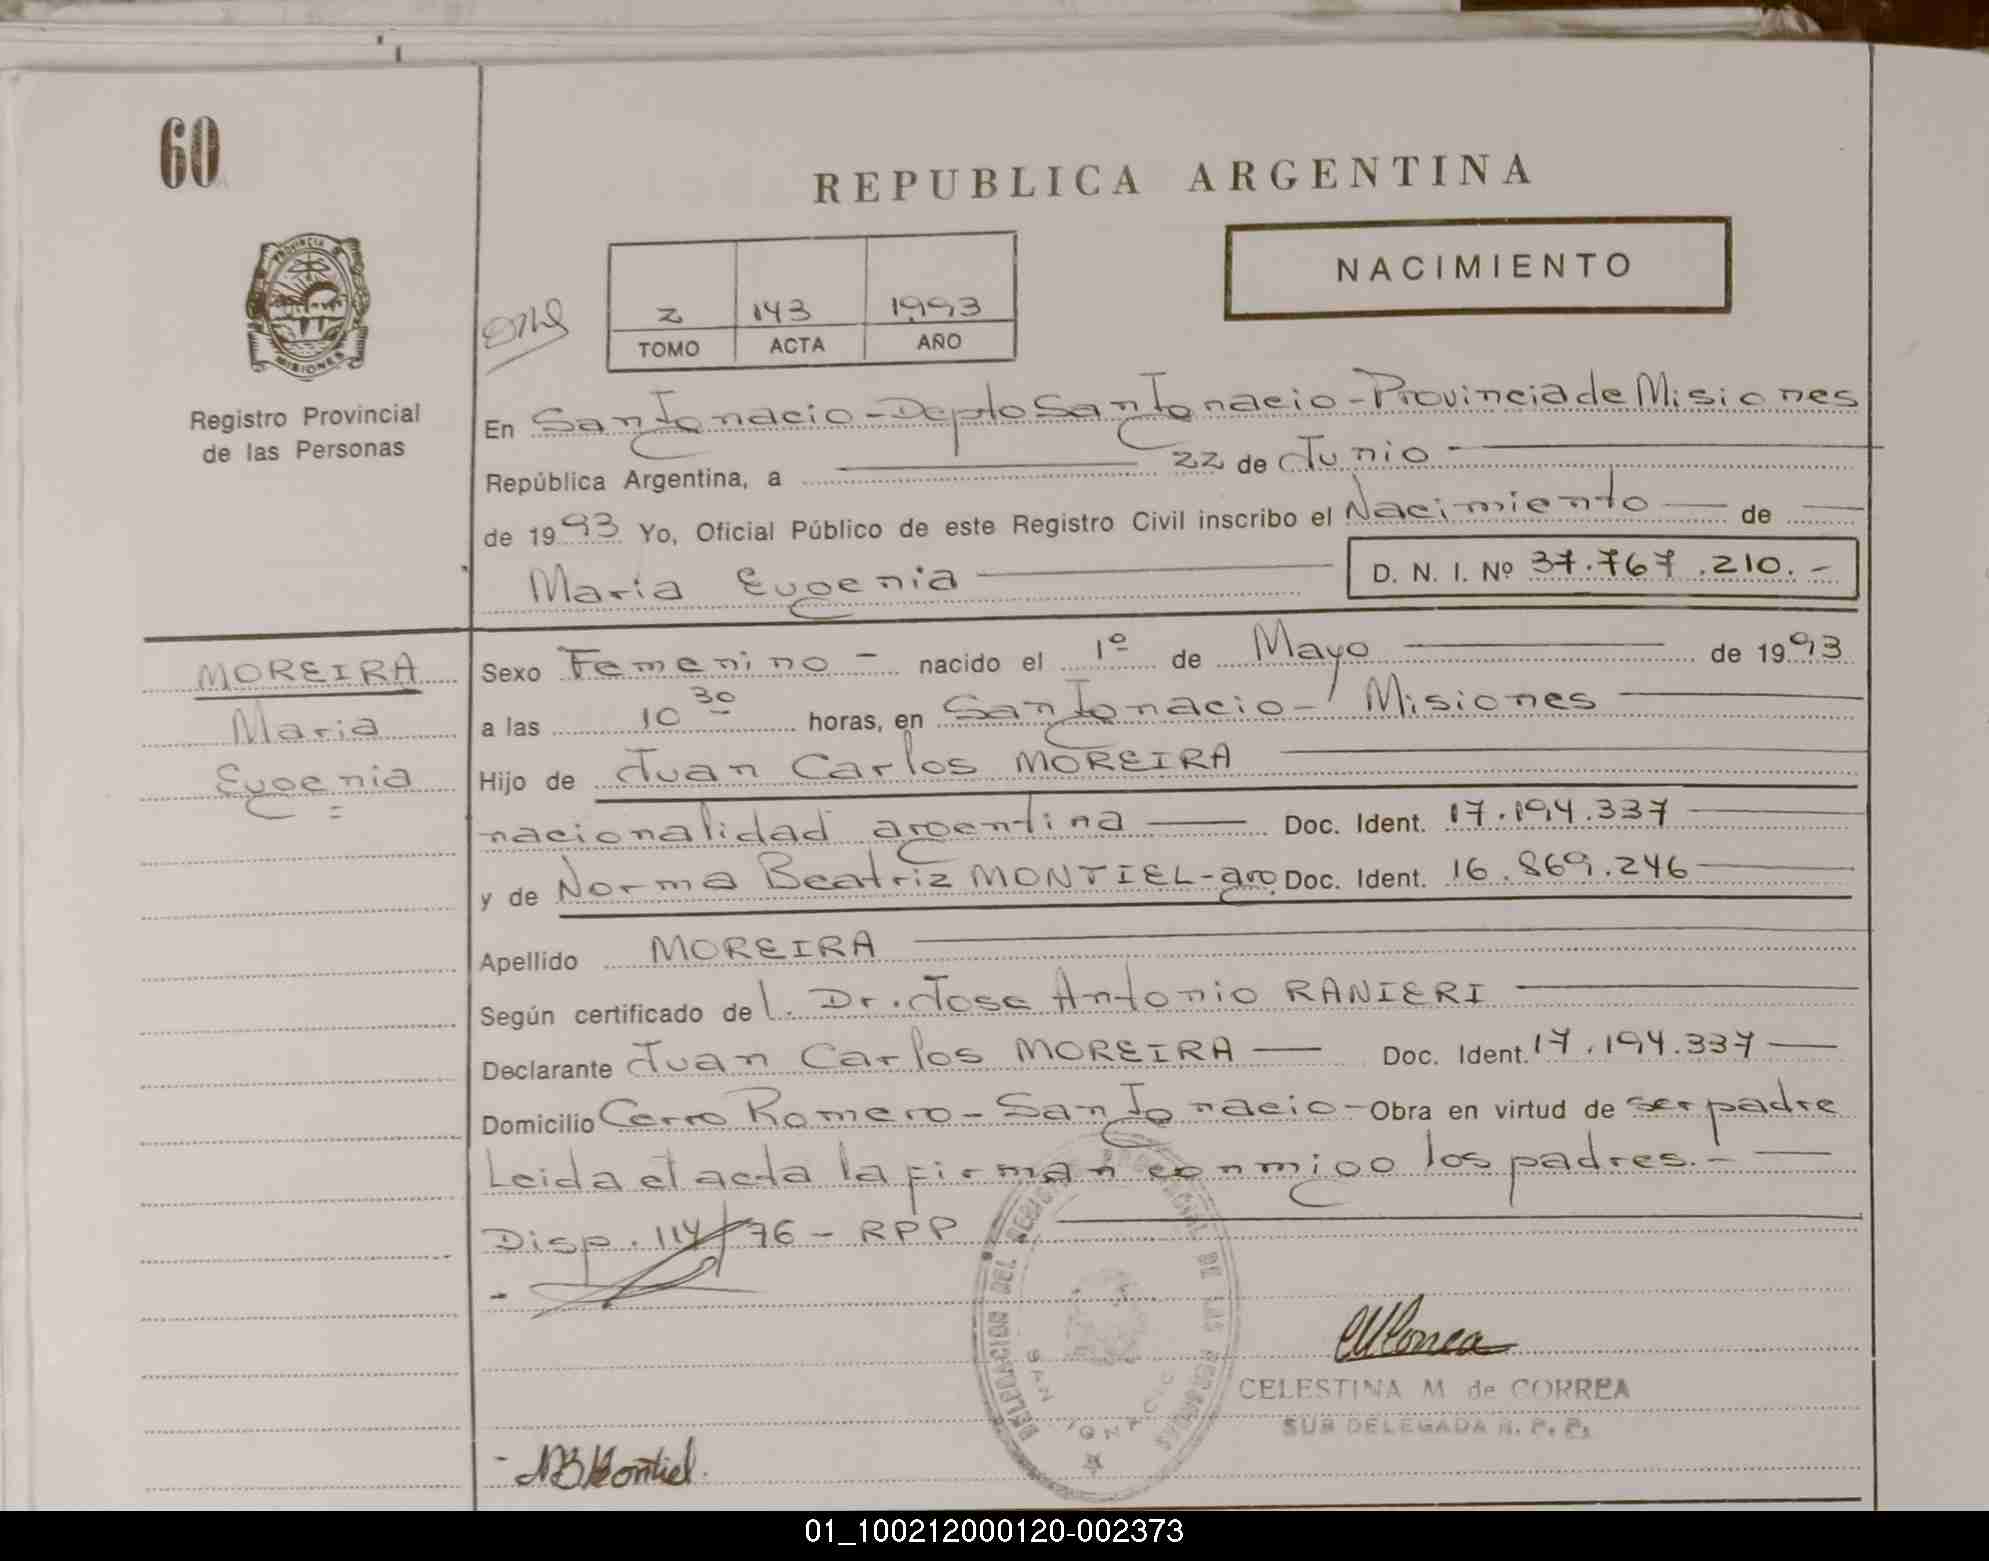 60
REPUBLICA ARGENTINA
PROVINCIA DE
MISIONES
NACIMIENTO
2 143 1993
TOMO ACTA AÑO
Registro Provincial
de las Personas
En San Ignacio - Depto San Ignacio - Provincia de Misiones
República Argentina, a 22 de Junio
de 1993 Yo, Oficial Público de este Registro Civil inscribo el Nacimiento de
Maria Eugenia D. N. I. Nº 37.767.210.-
MOREIRA
Maria
Eugenia
Sexo Femenino - nacido el 1º de Mayo de 1993
a las 10 30 horas, en San Ignacio - Misiones
Hijo de Juan Carlos MOREIRA
nacionalidad argentina Doc. Ident. 17.194.337
y de Norma Beatriz MONTIEL - arg. Doc. Ident. 16.869.246
Apellido MOREIRA
Según certificado del Dr. Jose Antonio RANIERI
Declarante Juan Carlos MOREIRA Doc. Ident. 17.194.337
Domicilio Cerro Romero - San Ignacio - Obra en virtud de ser padre
Leida el acta la firman conmigo los padres.-
Disp. 114/76 - RPP
DELEGACION DEL REGISTRO PROVINCIAL DE LAS PERSONAS
SAN IGNACIO
CELESTINA M de CORREA
SUB DELEGADA R. P. P.
NBMontiel.
01_100212000120-002373